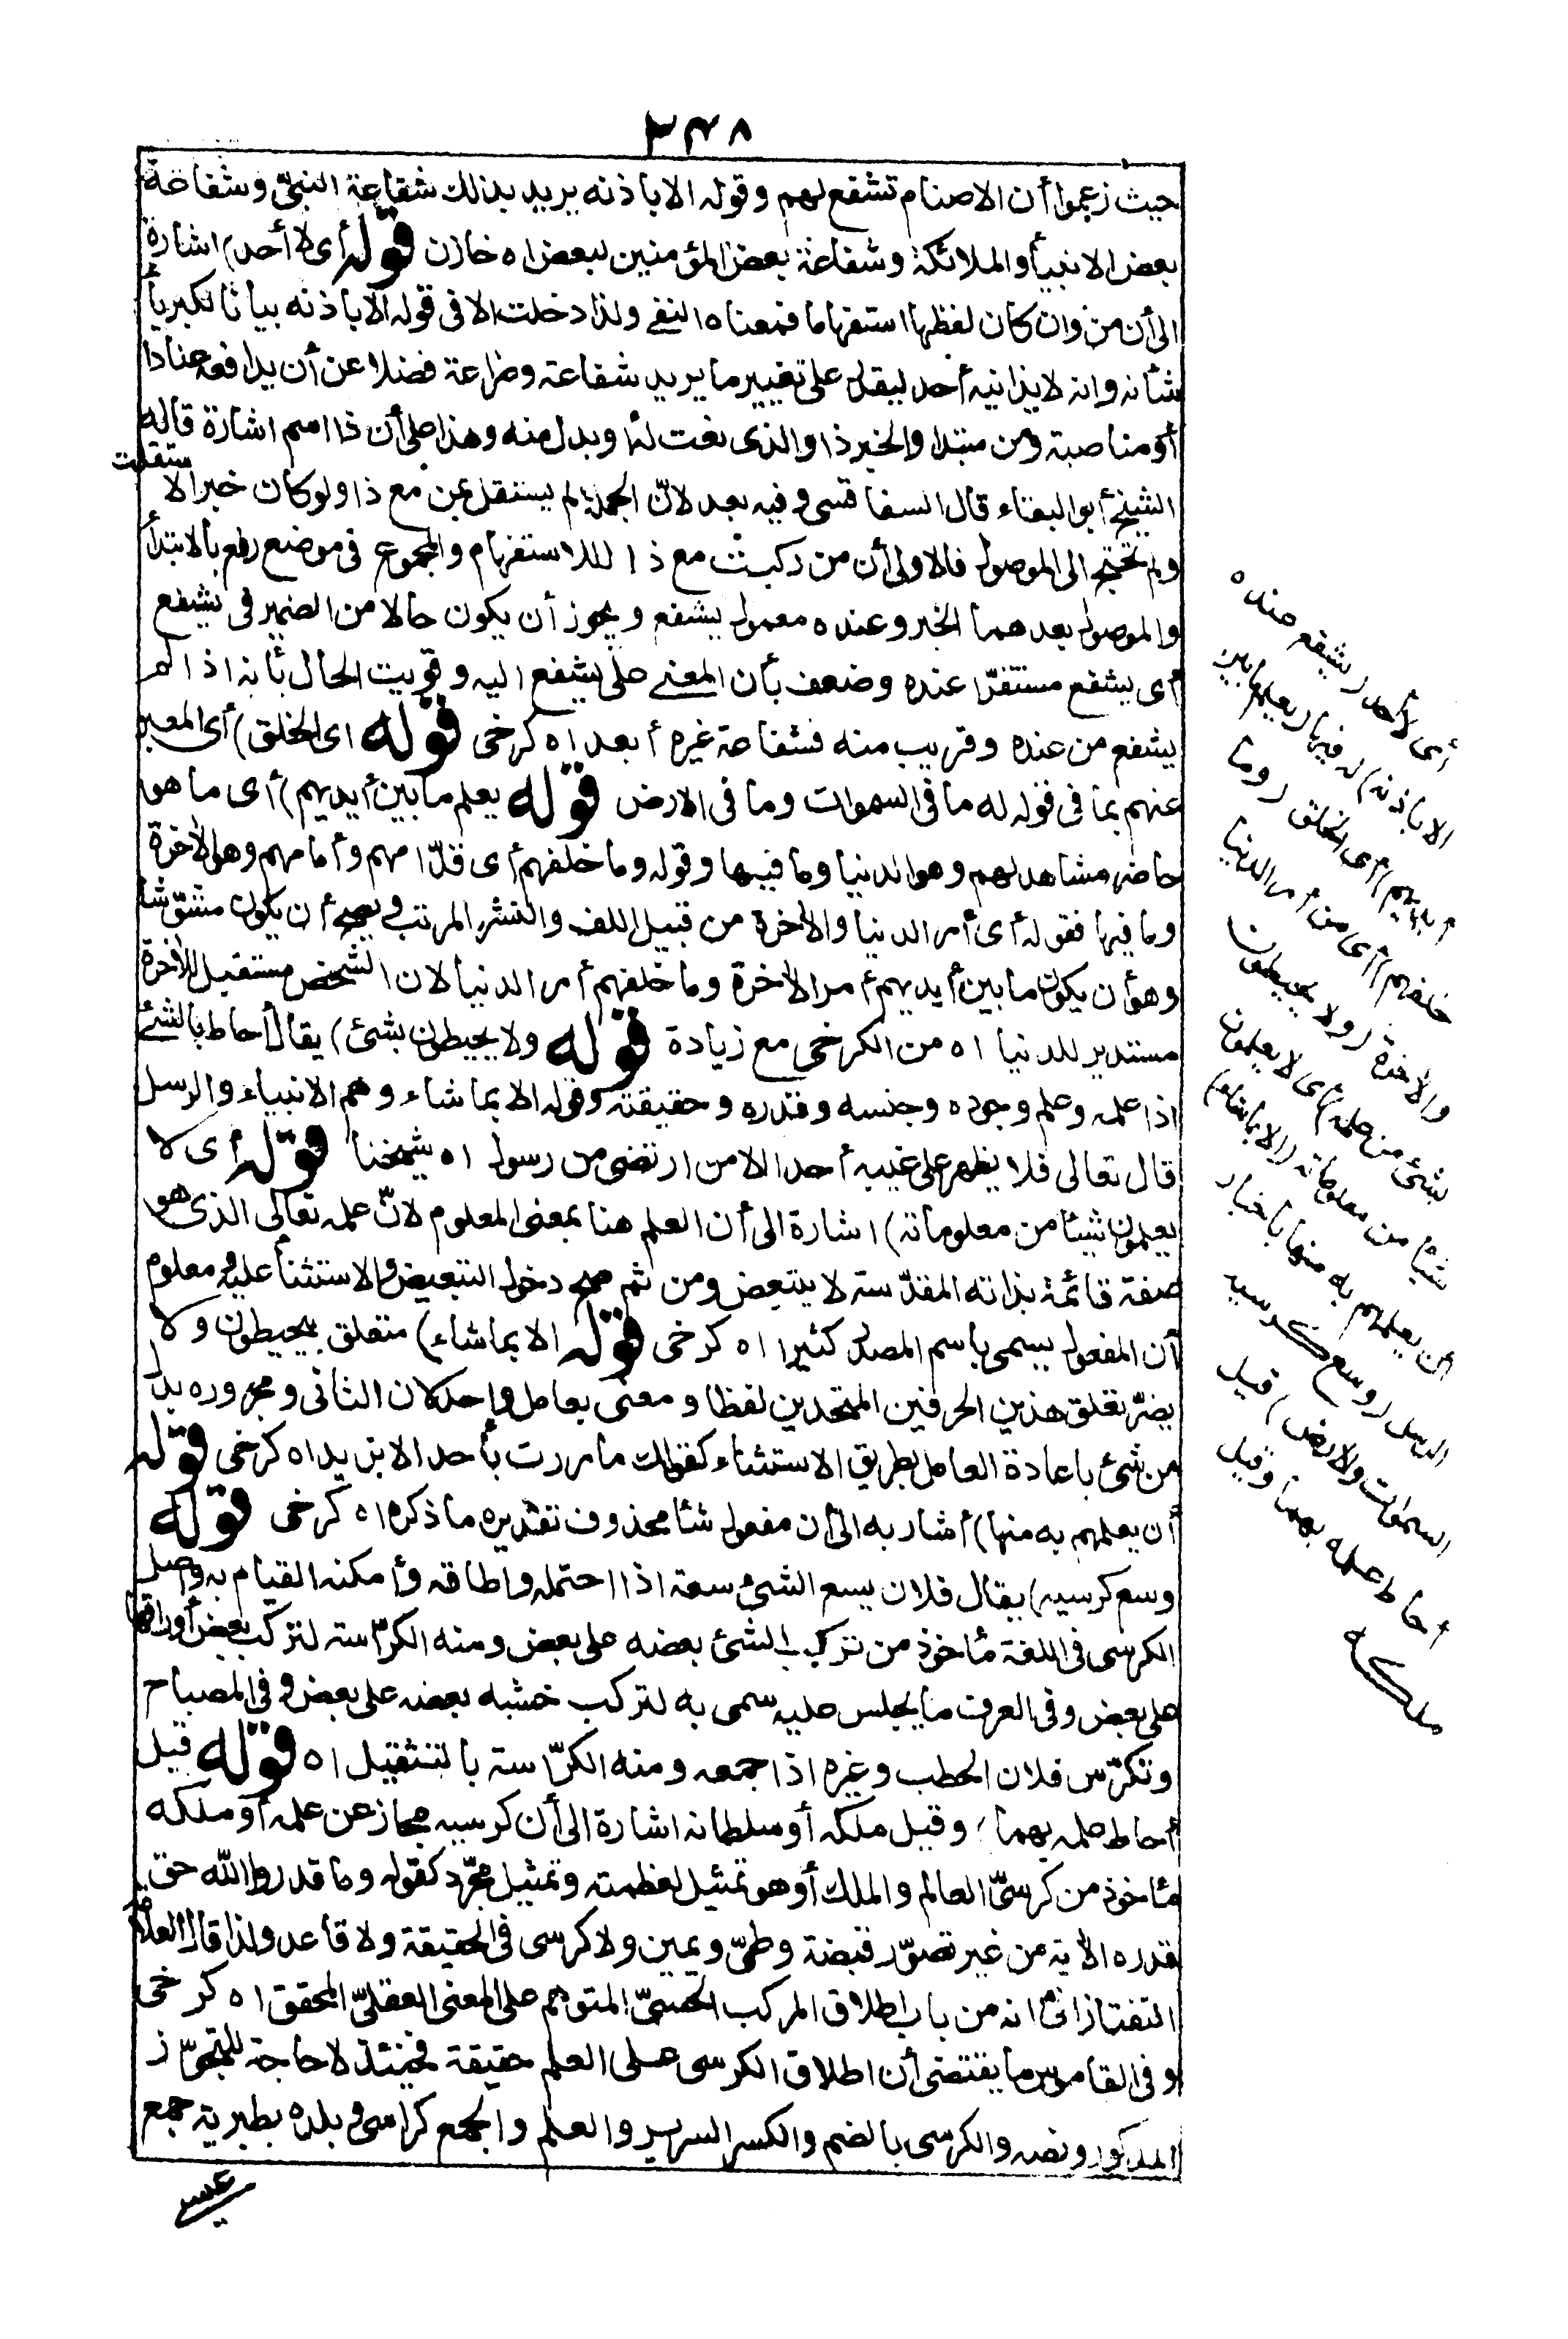 ٣٤٨
حيث زعموا أن الاصنام تشفع لهم وقوله الا باذنه يريد بذلك شفاعة النبيّ وشفاعة
بعض الانبيأ والملائكة وشفاعة بعض المؤمنين لبعض اه خازن قوله أى لا أحد) اشارة
الى أن من وان كان لفظها استفهاما فمعناه النفى ولذا دخلت الا فى قوله الا باذنه بيانا لكبريأ
شأنه وانه لا يدانيه أحد ليقدر على تغيير ما يريد شفاعة وضراعة فضلا عن أن يدافعه عنادا
أو مناصبة ومن مبتدا والخبر ذا والذى نعت لذا وبدل منه وهذا على أن ذا اسم اشارة قاله
الشيخ أبو البقاء قال السفاقسى وفيه بعد لانّ الجملة لم يستقل بمن مع ذا ولو كان خبرا لا ستقلت
ولم تحتج الى الموصول فالاولى أن من ركبت مع ذا للاستفهام والمجموع فى موضع رفع بالابتدأ
والموصول بعدهما الخبر وعنده معمول يشفع ويجوز أن يكون حالا من الضمير فى يشفع
أى يشفع مستقرّا عنده وضعف بأن المعنى على يشفع اليه وقويت الحال بأنه اذا لم
يشفع من عنده وقريب منه فشفاعة غيره أبعد اه كرخى قوله اى الخلق) أى المعبر
عنهم بما فى قوله له ما فى السموات وما فى الارض قوله يعلم ما بين أيديهم) أى ما هو
حاضر مشاهد لهم وهو الدنيا وما فيها وقوله وما خلفهم أى قدّامهم وأمامهم وهو الأخرة
وما فيها فقوله أى أمر الدنيا والأخرة من قبيل اللف والنشر المرتب ويصح أن يكون مشوّشا
وهو أن يكون ما بين أيديهم أمر الأخرة وما خلفهم أمر الدنيا لان الشخص مستقبل للأخرة
مستدبر للدنيا اه من الكرخى مع زيادة قوله ولا يحيطون بشئ) يقال أحاط بالشئ
اذا علمه وعلم وجوده وجنسه وقدره وحقيقته وقوله الا بما شاء وهم الانبياء والرسل
قال تعالى فلا يظهر على غيبه أحدا الا من ارتضى من رسول اه شيخنا قوله أى لا
يعلمون شيئا من معلوماته) اشارة الى أن العلم هنا بمعنى المعلوم لانّ علمه تعالى الذى هو
صفة قائمة بذاته المقدّسة لا يتبعض ومن ثم صح دخول التبعيض والاستثنأ عليه ومعلوم
أن المفعول يسمى باسم المصدر كثيرا اه كرخى قوله الا بما شاء) متعلق بيحيطون ولا
يضرّ تعلق هذين الحرفين المتحدين لفظا ومعنى بعامل واحد لان الثانى ومجروره بدل
من شئ باعادة العامل بطريق الاستثناء كقولك ما مررت بأحد الا بزيد اه كرخى قوله
أن يعلمهم به منها) أشار به الى أن مفعول شأ محذوف تقديره ما ذكره اه كرخى قوله
وسع كرسيه) يقال فلان يسع الشئ سعة اذا احتمله واطاقه وأمكنه القيام به وأصل
الكرسى فى اللغة مأخوذ من تركب الشئ بعضه على بعض ومنه الكرّاسة لتركب بعض أوراقها
على بعض وفى العرف ما يجلس عليه سمى به لتركب خشبه بعضه على بعض وفى المصباح
وتكرّس فلان الحطب وغيره اذا جمعه ومنه الكرّاسة بالتثقيل اه قوله قيل
أحاط علمه بهما) وقيل ملكه أو سلطانه اشارة الى أن كرسيه مجاز عن علمه أو ملكه
مأخوذ من كرسىّ العالم والملك أو هو تمثيل لعظمته وتمثيل مجرّد كقوله وما قدروا الله حق
قدره الأية من غير تصوّر قبضة وطىّ ويمين ولا كرسى فى الحقيقة ولا قاعد ولذا قال العلامة
التفتازانى انه من باب اطلاق المركب الحسىّ المتوهم على المعنى العقلىّ المحقق اه كرخى
وفى القاموس ما يقتضى أن اطلاق الكرسى على العلم حقيقة فحينئذ لا حاجة للتجوّز
المذكور ونصه والكرسى بالضم والكسر السرير والعلم والجمع كراسى وبلده بطبرية جمع
أى لا أحد (يشفع عنده
الا باذنه) له فيها (يعلم ما بين
أيديهم) أى الخلق (وما
خلفهم) أى من أمر الدنيا
والأخرة (ولا يحيطون
بشئ من علمه) أى لا يعلمون
شيأ من معلوماته (الا بما شاء)
أن يعلمهم به منها باخبار
الرسل (وسع كرسيه
السموات والارض) قيل
أحاط علمه بهما وقيل
ملكه
عيسى